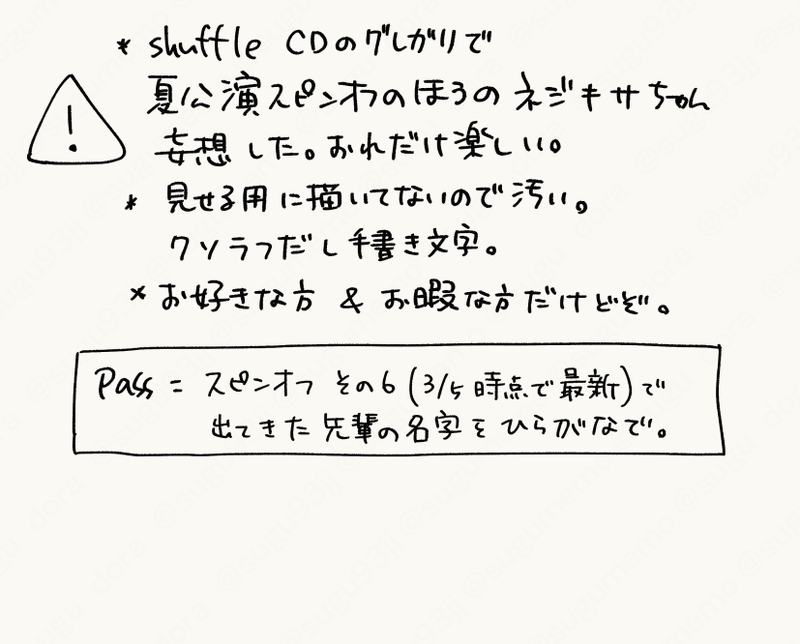 * shuffle CDのグレがリで
!
夏公演スピンオフのほうのネジキサちゃん
妄想した。おれだけ楽しい。
* 見せる用に描いてないので汚い。
クソラフだし手書き文字。
* お好きな方 & お暇な方だけどぞ。
Pass = スピンオフ その6 (3/5 時点で最新)で
出てきた先輩の名字をひらがなで。